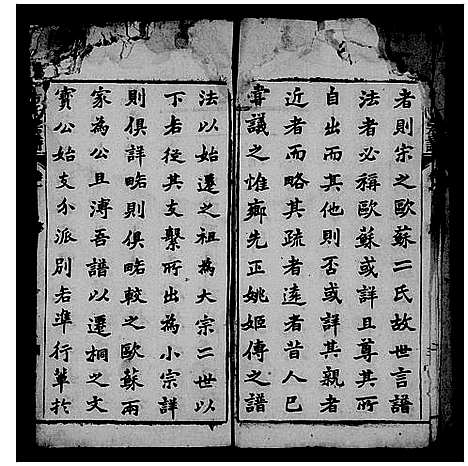 者則宋之歐蘇二氏故世言譜
法者必稱歐蘇或詳且尊其所
自出而其他則否或詳其親者
近者而略其疏者遠者昔人已
嘗議之惟鄉先正姚姬傳之譜
法以始遷之祖為大宗二世以
下各從其支繫所出為小宗詳
則俱詳畧則俱畧較之歐蘇兩
家為公且溥吾譜以遷桐之文
寶公始支分派別各準行輩於